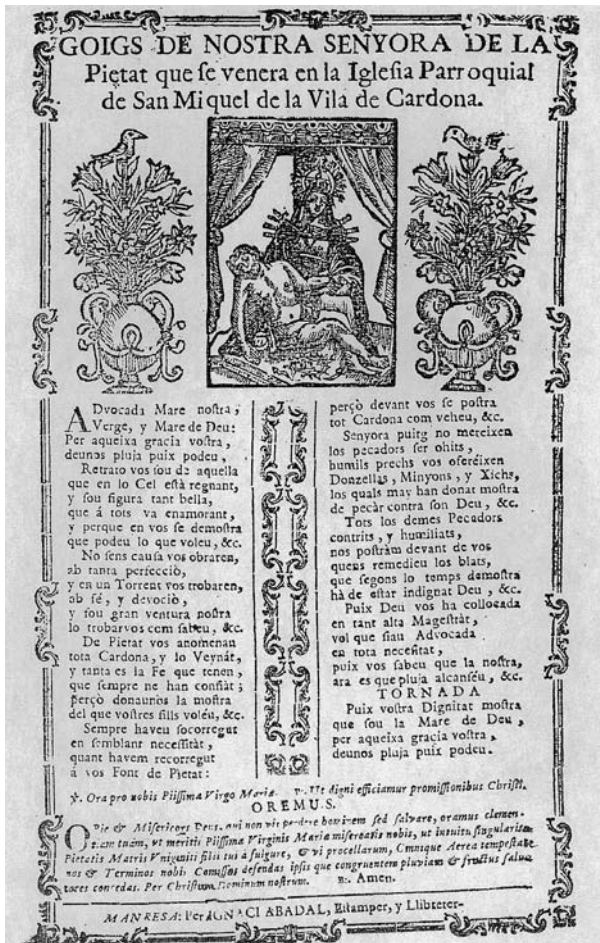 GOIGS DE NOSTRA SENYORA DE LA
Pietat que ſe venera en la Igleſia Parroquial
de San Miquel de la Vila de Cardona.
ADvocada Mare noſtra,
Verge, y Mare de Deu:
Per aqueixa gracia voſtra,
deunos pluja puix podeu,
Retrato vos ſou de aquella
que en lo Cel està regnant,
y ſou figura tant bella,
que á tots va enamorant,
y perque en vos ſe demoſtra
que podeu lo que voleu, &c.
No ſens cauſa vos obraren,
ab tanta perfecciò,
y en un Torrent vos trobaren,
ab fé, y devociò,
y ſou gran ventura noſtra
lo trobarvos com ſabeu, &c.
De Pietat vos anomenau
tota Cardona, y lo Veynát,
y tanta es la Fe que tenen,
que ſempre ne han confiàt;
perçò donaunos la moſtra
del que voſtres fills voléu, &c.
Sempre haveu ſocorregut
en ſemblant neceſſitàt,
quant havem recorregut
á vos Font de Pietat:
perçò devant vos ſe poſtra
tot Cardona com veheu, &c.
Senyora puitg no mereixen
los pecadors ſer ohits,
humils prechs vos oferéixen
Donzellas, Minyons, y Xichs,
los quals may han donat moſtra
de pecàr contra ſon Deu, &c.
Tots los demes Pecadors
contrits, y humiliats,
nos poſtràm devant de vos
quens remedieu los blats,
que ſegons lo temps demoſtra
hà de eſtar indignat Deu, &c.
Puix Deu vos ha collocada
en tant alta Mageſtàt,
vol que ſiau Advocada
en tota neceſitat,
puix vos ſabeu que la noſtra,
ara es que pluja alcanſéu, &c.
TORNADA
Puix voſtra Dignitat moſtra
que ſou la Mare de Deu,
per aqueixa gracia voſtra,
deunos pluja puix podeu.
℣. Ora pro nobis Piiſſima Virgo Maria. ℟. Ut digni efficiamur promiſſionibus Chriſti.
OREMUS.
OPie & Miſericors Deus, qui non vis perdere hominem ſed ſalvare, oramus clemen-
tiam tuàm, ut meritis Piiſſima Virginis Mariæ nobis, ut intuitu ſingularitatem
Pietatis Matris Vnigeniti filii tui à fulgure, & vi procellarum, Omnique Aerea tempeſtate
nos & Terminos nobis Comiſſos defendas ipſis que congruentem pluviam & fructus ſaluta
tores concedas. Per Chriſtum Dominum noſtrum. ℟. Amen.
MANRESA: Per IGNACI ABADAL, Eſtamper, y Llibreter.